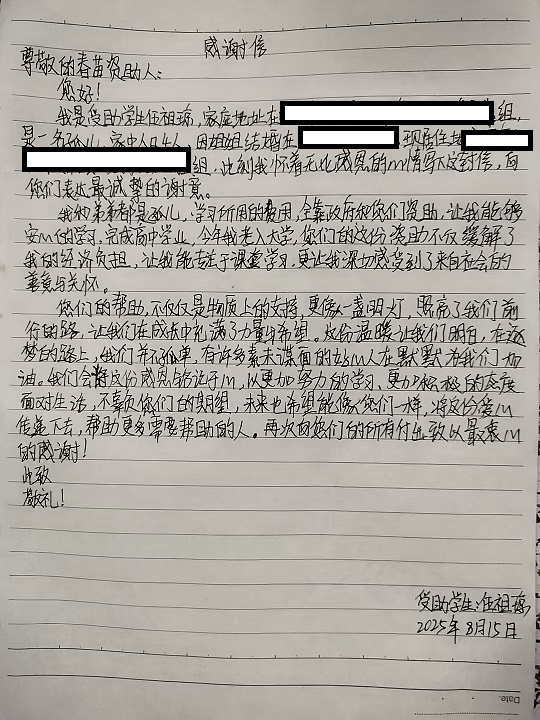 感谢信
尊敬的春苗资助人:
您好!
我是受助学生任祖琼,家庭地址在 组,
是一名孤儿,家中人口4人,因姐姐结婚在 现居住地
组,此刻我怀着无比感恩的心情写下这封信,向
你们表达最诚挚的谢意。
我和弟弟都是孤儿,学习所用的费用,全靠政府和你们资助,让我能够
安心的学习,完成高中学业,今年我考入大学,您们的这份资助不仅缓解了
我的经济负担,让我能专注于课堂学习,更让我深切感受到了来自社会的
善意与关怀。
您们的帮助,不仅仅是物质上的支持,更像一盏明灯,照亮了我们前
行的路,让我们在成长中充满了力量与希望。这份温暖让我们明白,在逐
梦的路上,我们并不孤单,有许多素未谋面的好心人在默默为我们加
油。我们会将这份感恩铭记于心,以更加努力的学习,更加积极的态度
面对生活,不辜负你们的期望,未来也希望能像您们一样,将这份爱心
传递下去,帮助更多需要帮助的人。再次向您们的所有付出致以最衷心
的感谢!
此致
敬礼!
受助学生:任祖琼
2025年8月15日
Date.